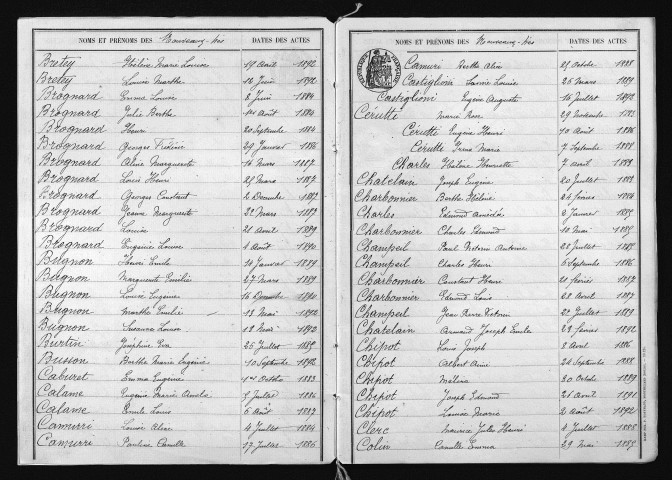 NOMS ET PRÉNOMS DES Nouveaux-nés DATES DES ACTES
Bretey Marie Louise 19 Août 1892
Bretey Louise Marthe 16 Juin 1892
Brognard Emma Louise 8 Juin 1884
Brognard Julie Berthe 1er Août 1884
Brognard Henri 20 Septembre 1884
Brognard Georges Frédéric 29 Janvier 1886
Brognard Aline Marguerite 16 Mars 1887
Brognard Louis Henri 28 Mars 1887
Brognard Georges Constant 2 Décembre 1887
Brognard Jeanne Marguerite 22 Mars 1889
Brognard Louise 21 Août 1889
Brognard Eugénie Louise 4 Août 1890
Bugnon Henri Emile 10 Janvier 1889
Bugnon Marguerite Emilie 27 Mars 1889
Bugnon Louise Eugénie 16 Décembre 1890
Bugnon Marthe Emélie 13 Mai 1892
Bugnon Suzanne Louise 12 Mai 1892
Burtin Joséphine Eva 25 Juillet 1889
Busson Berthe Marie Eugénie 10 Septembre 1892
Caburet Emma Eugénie 1er Octobre 1883
Calame Eugène Marie 5 Juillet 1884
Calame Emile Louis 6 Août 1887
Camurri Louise Aline 4 Juillet 1884
Camurri Pauline Camille 17 Juillet 1886
NOMS ET PRÉNOMS DES Nouveaux-nés DATES DES ACTES
Camuri Berthe Aline 21 Octobre 1888
Castiglioni Louise 26 Mars 1889
Castiglioni Eugène Auguste 16 Juillet 1892
Cérutti Marie Rose 29 Novembre 1883
Cérutti Eugène Henri 10 Août 1886
Cérutti Irma Marie 7 Septembre 1888
Charles Hélène Henriette 7 Avril 1888
Chatelain Joseph Eugène 20 Juillet 1888
Charbonnier Berthe Hélène 24 février 1884
Charles Edmond Amédée 2 Janvier 1885
Charbonnier Charles Edmond 10 Mai 1885
Champeil Paul Victorin Antoine 22 Juillet 1885
Champeil Charles Henri 6 Septembre 1886
Charbonnier Constant Henri 20 février 1887
Charbonnier Edmond Louis 28 Avril 1887
Champeil Jean Pierre Victorin 22 Juillet 1889
Chatelain Armand Joseph Emile 29 février 1892
Chipot Louis Joseph 3 Avril 1886
Chipot Albert Aimé 24 Septembre 1888
Chipot Mélina 30 Octobre 1889
Chipot Joseph Edmond 21 Août 1891
Chipot Louise Marie 2 Août 1892
Clerc Maurice Jules Henri 4 Juillet 1885
Colin Camille Emma 29 Mai 1885